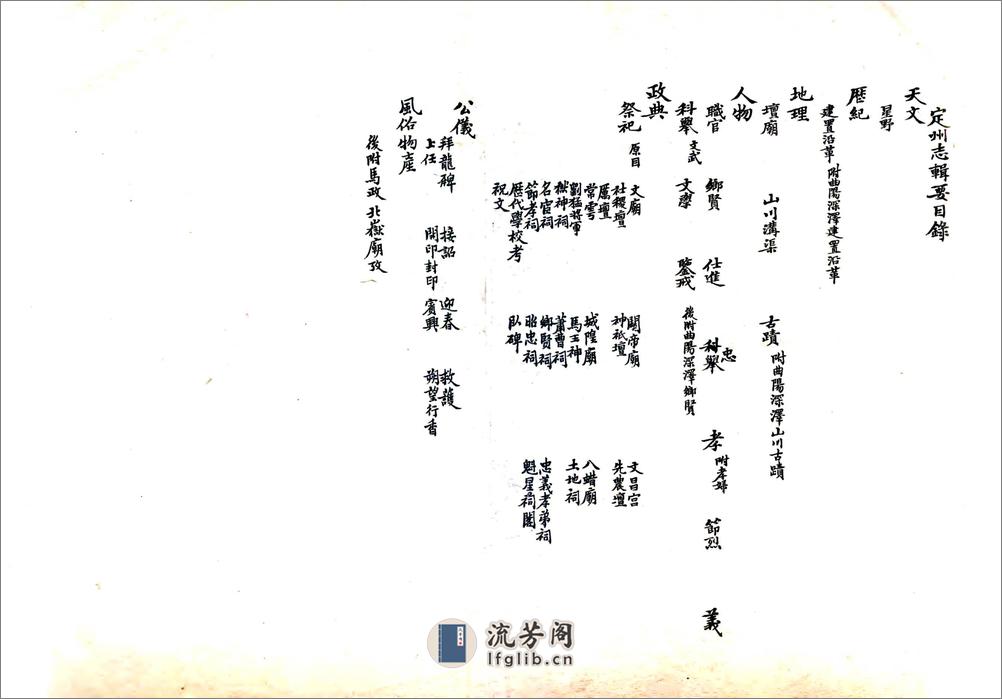 定州志輯要目錄
天文
星野
歷紀
建置沿革 附曲陽深澤建置沿革
地理
壇廟 山川溝渠 古蹟 附曲陽深澤山川古蹟
人物
職官 鄉賢 仕進 科舉 忠 孝 附孝婦 節烈 義
科舉 文武 文學 鑒戒 後附曲陽深澤鄉賢
政典
祭祀 原目
文廟 關帝廟 文昌宮
社稷壇 神祇壇 先農壇
厲壇
常雩 城隍廟 八蜡廟
劉猛將軍 馬王神 土地祠
獄神祠 蕭曹祠
名宦祠 鄉賢祠 忠義孝弟祠
節孝祠 昭忠祠 魁星祠閣
歷代學校考 臥碑
祝文
公儀
拜龍碑 接詔 迎春 救護
上任 開印封印 賓興 朔望行香
風俗物產
後附馬政 北嶽廟攷
流芳阁
lfglib.cn